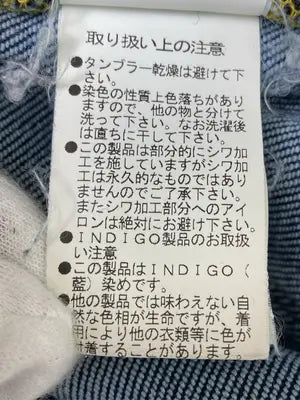 取り扱い上の注意
●タンブラー乾燥は避けて下
さい。
●染色の性質上色落ちがあり
ますので、他の物と分けて
洗って下さい。なお洗濯後
は直ちに干して下さい。
●この製品は部分的にシワ加
工を施していますがシワ加
工は永久的なものではあり
ませんのでご了承下さい。
またシワ加工部分へのアイ
ロンは絶対にお避け下さい。
●INDIGO製品のお取扱
い注意
●この製品はINDIGO(
藍)染めです。
●他の製品では味わえない自
然な色相が生命ですが、着
用により他の衣類等に色が
付着することがあります。